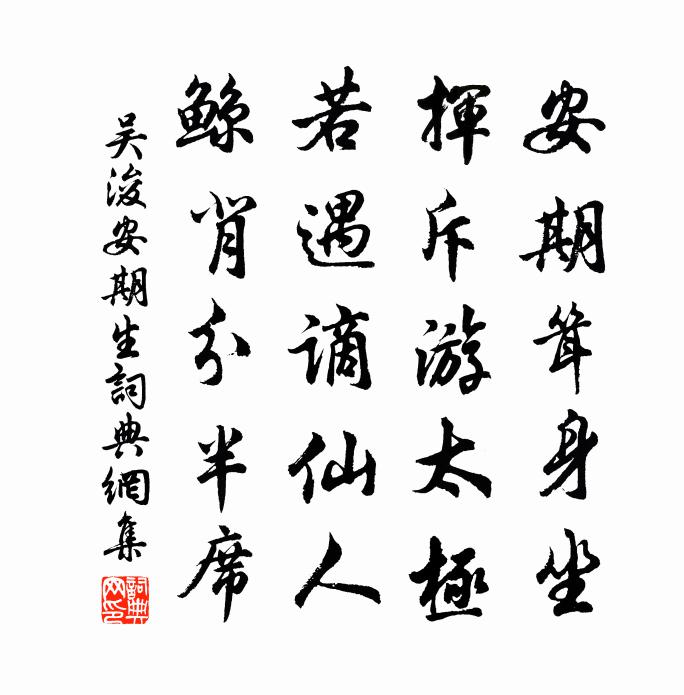 安期耸身坐
揮斥游太極
若遇謫仙人
鯨背分半席
吴浚安期生詞典網集
詞典網印